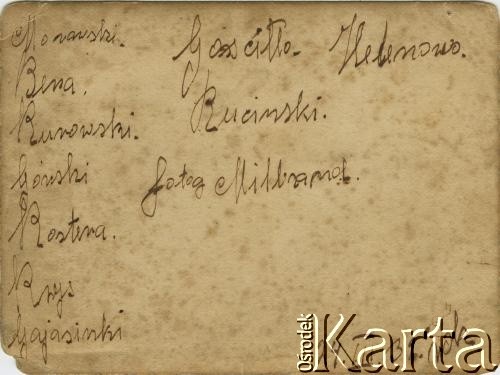 Morawski.
Bera.
Kurowski.
Górski
Kostera.
Kryś
Gajasinki
Gościłło. Helenowo.
Rucinski.
fotog Millbrand.
Ośrodek
Karta